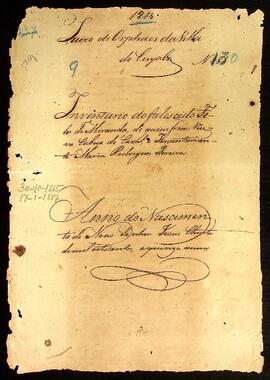 1815
Juizo de Orphaos da Villa
de Cuyaba
9
Nº 130
Inventario do falescido
de Miranda, de quem ficou Viu
va Cabeça de Cazal e Inventarian
te Maria Rodrigues
30-10-1815
17-1-1817
Anno do Nascimen
to de Nosso Senhor Jezus Christo
de mil oitocentos, e quinze annos